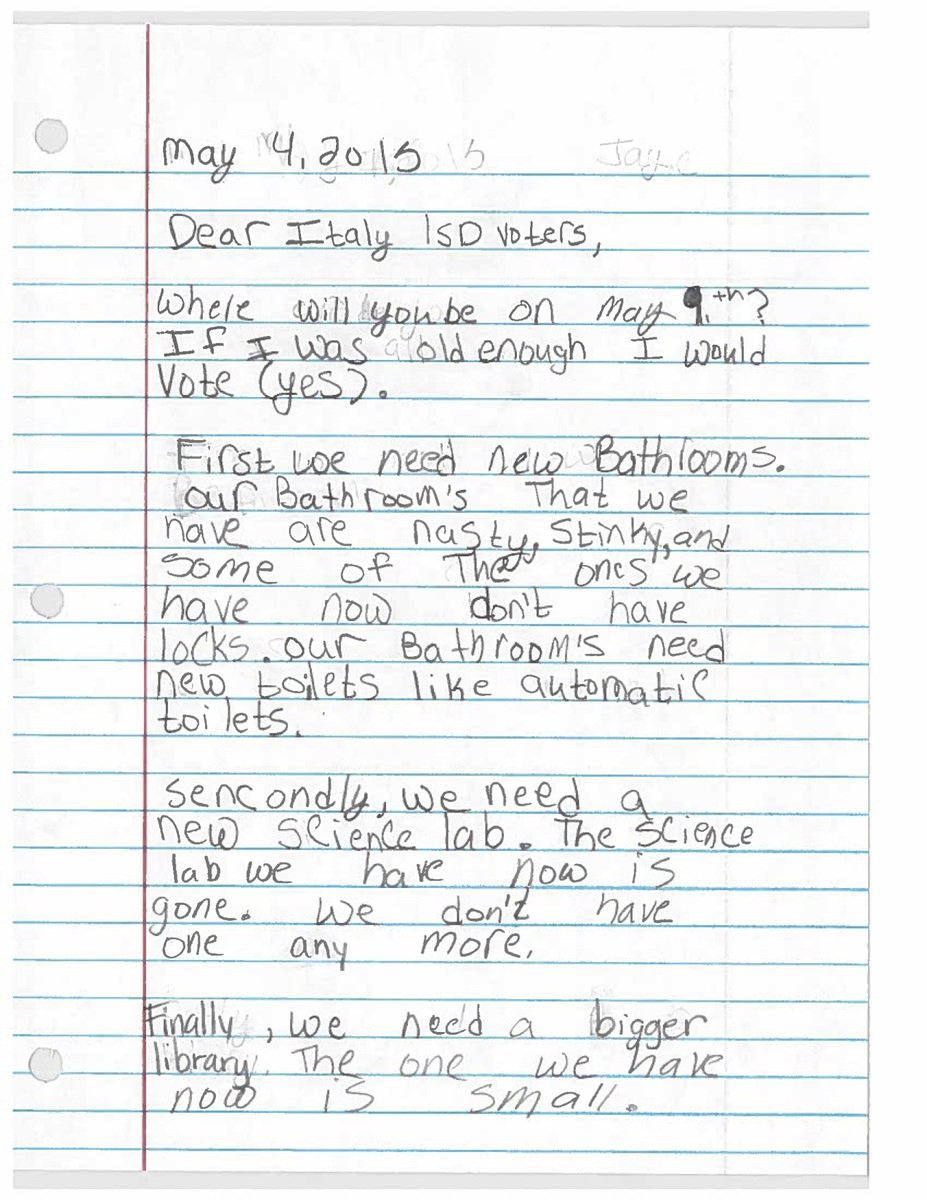 May 4, 2015 Jayc
Dear Italy ISD voters,
Where will you be on may 9.th?
If I was old enough I would
Vote (yes).
First we need new Bathrooms.
our Bathroom's That we
have are nasty, Stinky, and
some of The ones we
have now don't have
locks. our Bathroom's need
new toilets like automatic
toilets.
sencondly, we need a
new science lab. The science
lab we have now is
gone. We don't have
one any more.
Finally, we need a bigger
library. The one we have
now is small.